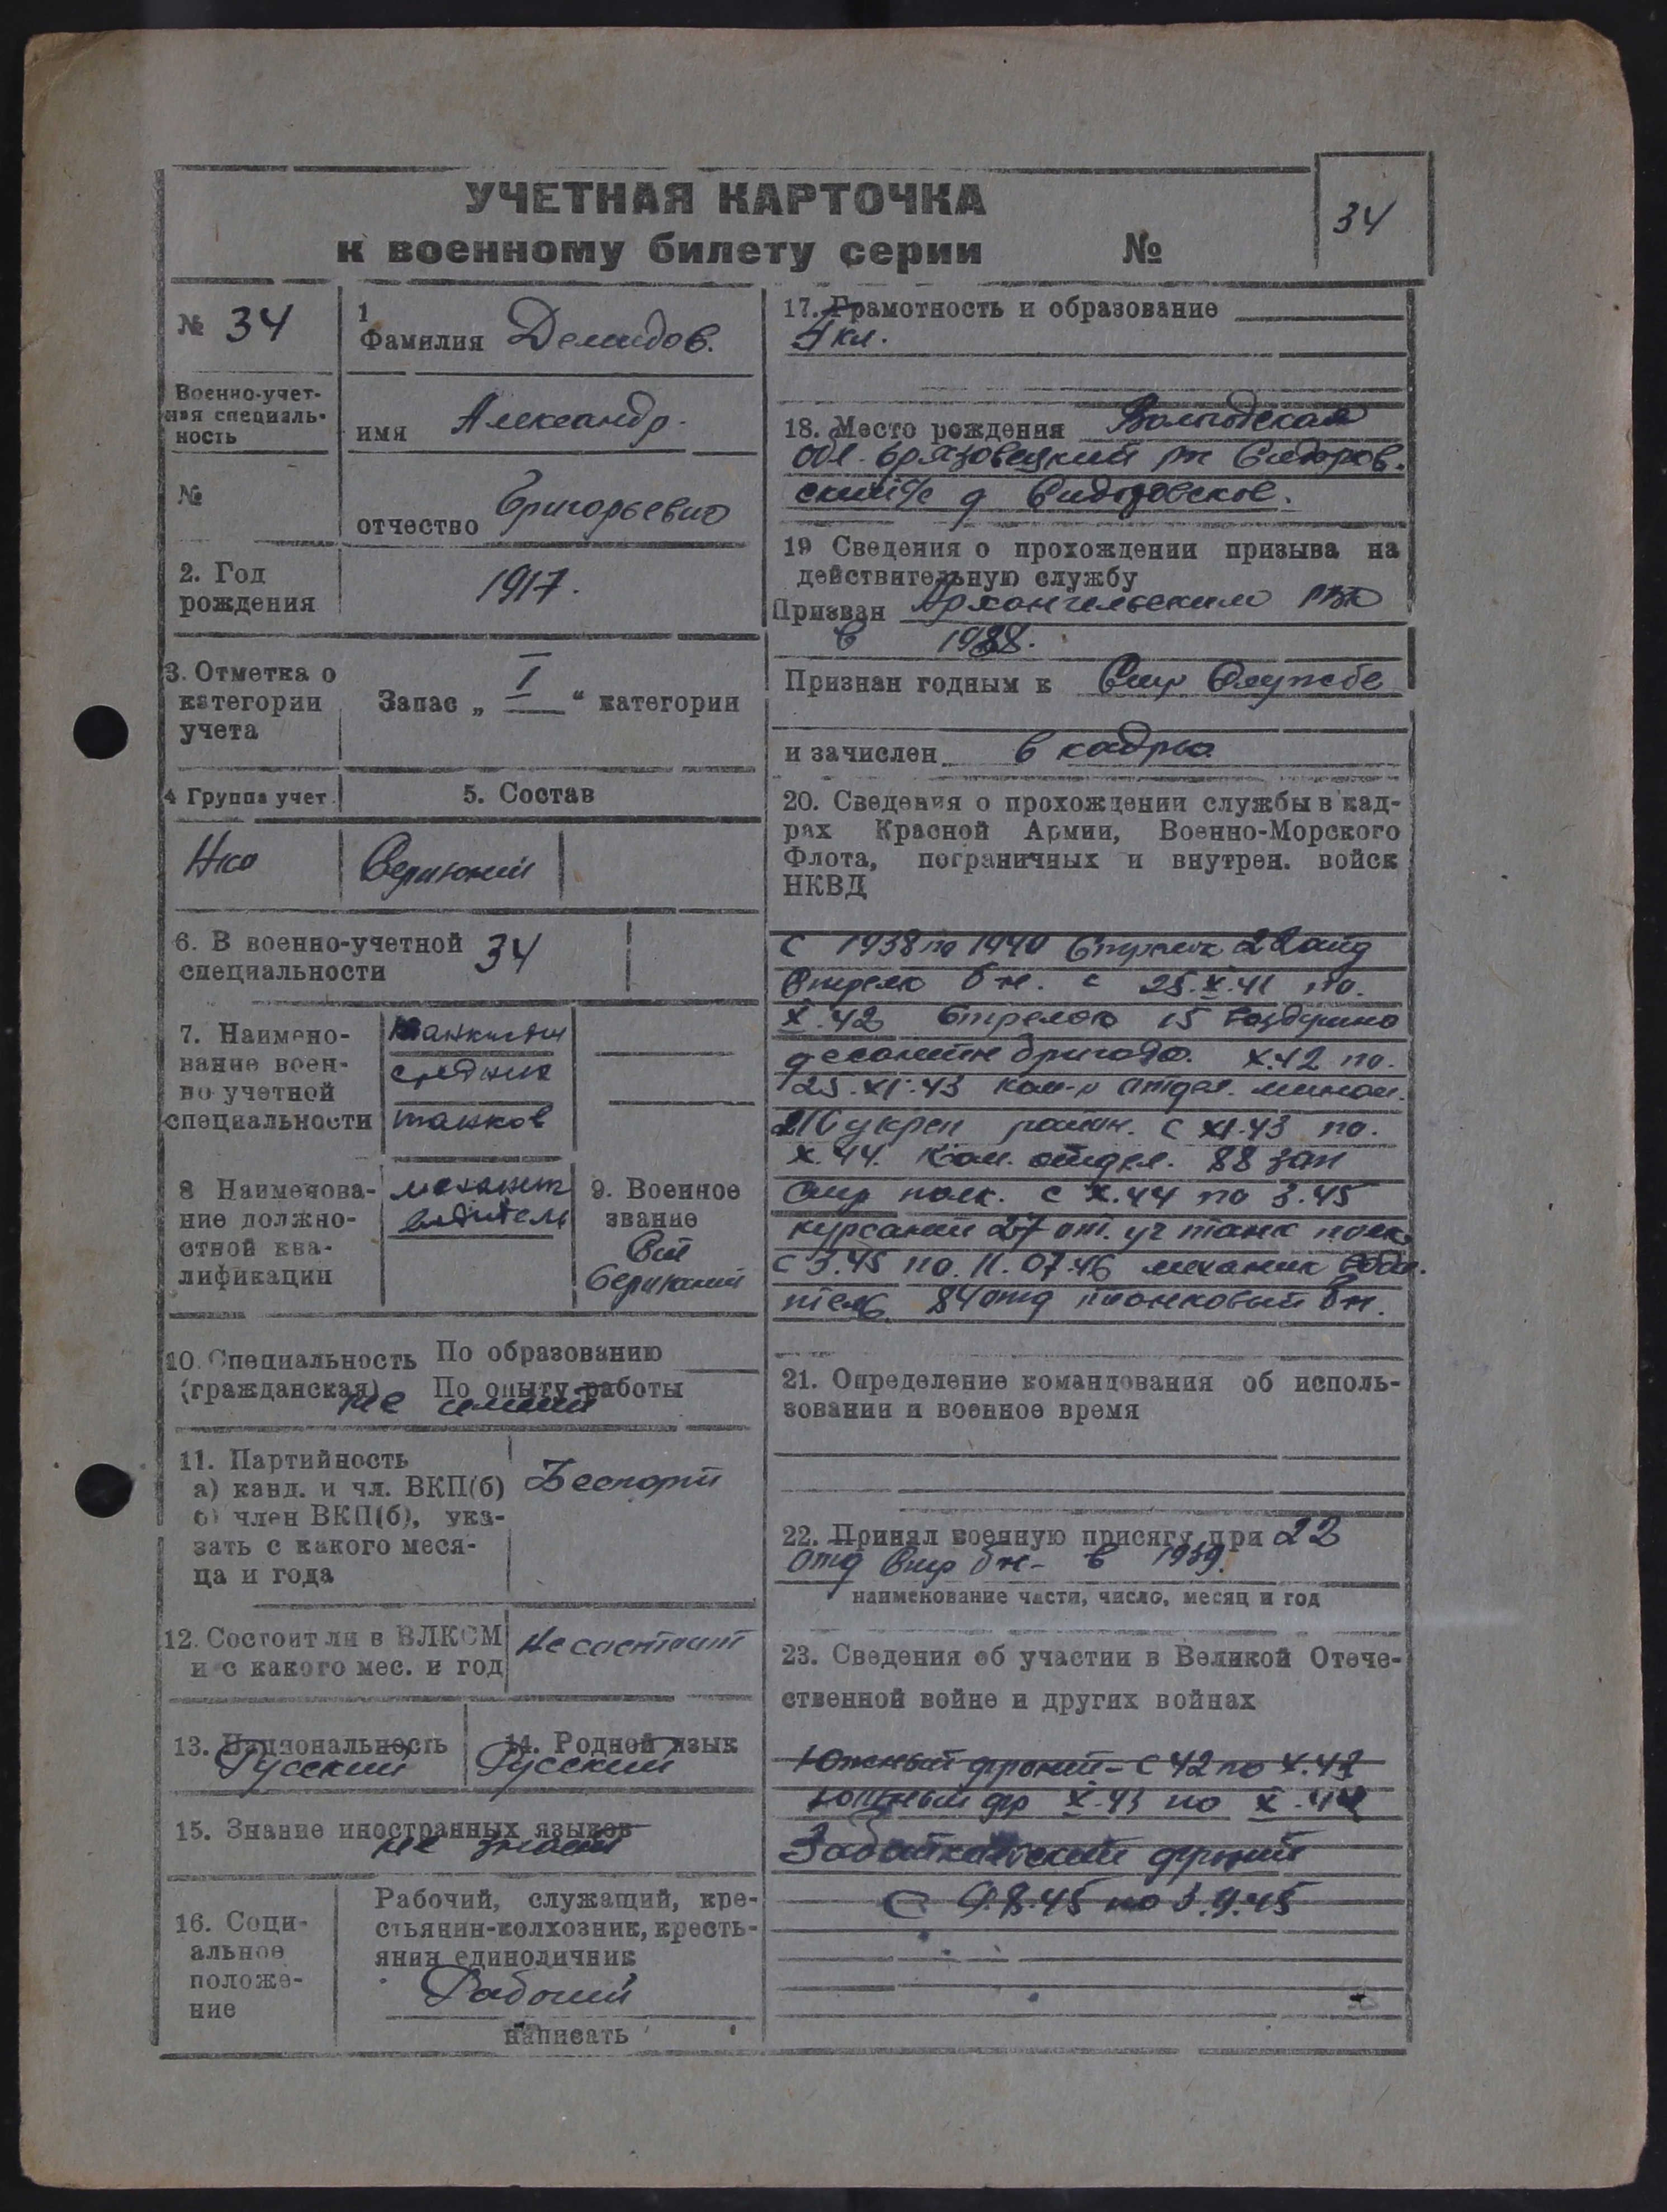 УЧЕТНАЯ КАРТОЧКА
к военному билету серии №
34
№ 34
1
Фамилия Демидов.
Военно-учет-
ная специаль-
ность
имя Александр.
№
отчество Григорьевич
2. Год
рождения
1917.
3. Отметка о
категории
учета
Запас „ I “ категории
4 Группа учет.
5. Состав
Нко
Сержоний
6. В военно-учетной
специальности
34
7. Наимено-
вание воен-
но учетной
специальности
средних
танков
8 Наименова-
ние должно-
стной ква-
лификации
механик
водитель
9. Военное
звание
10. Специальность По образованию
(гражданская) По опыту работы
не имеит
11. Партийность
а) канд. и чл. ВКП(б)
б) член ВКП(б), ука-
зать с какого меся-
ца и года
Беспарт
12. Состоит ли в ВЛКСМ
и с какого мес. и год
Не состоит
13. Национальность
Русский
14. Родной язык
Русский
15. Знание иностранных языков
не знает
16. Соци-
альное
положе-
ние
Рабочий, служащий, кре-
стьянин-колхозник, кресть-
янин единоличник
Рабочий
написать
17. Грамотность и образование
4 кл.
18. Место рождения Вологодская
обл. Грязовецкий рн Сидоров.
ский с/с д Сидоровское.
19 Сведения о прохождении призыва на
действительную службу
Призван Архангельским РВК
в 1938.
Признан годным к Стр Службе
и зачислен в кадры
20. Сведения о прохождении службы в кад-
рах Красной Армии, Военно-Морского
Флота, пограничных и внутрен. войск
НКВД
с 1938 по 1940 Стрелок 22 отд
Стрелк бн. с 25.X.41 по.
X.42 Стрелок 15 Воздушно
десантн бригада. X.42 по.
25.XI.43 ком-р отдел. мином.
укреп район. с XI.43 по.
X.44. Ком. отдел. 88 зап
стр полк. с X.44 по 3.45
курсант 27 от. уч танк полк
с 3.45 по. 11.07.46 механик води.
тель 84 отд танковый бн.
21. Определение командования об исполь-
зовании и военное время
22. Принял военную присягу при 22
отд Стр бн- в 1939.
наименование части, число, месяц и год
23. Сведения об участии в Великой Отече-
ственной войне и других войнах
Южный фронт - с 42 по X.43
Южный фр X.43 по X.44
Забайкальский фронт
с 9.8.45 по 3.9.45